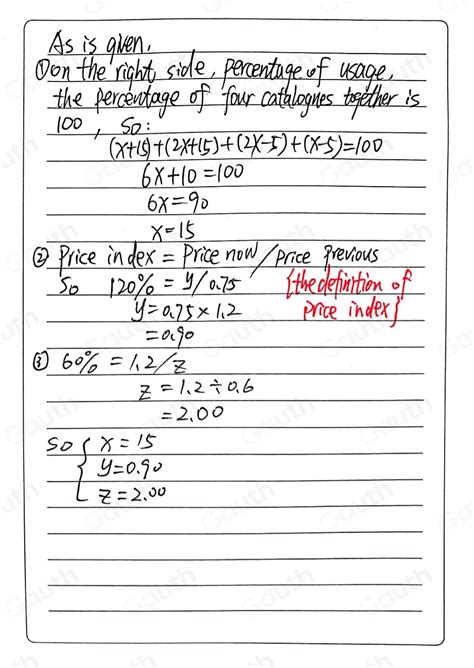 As is given,
①on the right side, percentage of usage,
the percentage of four catalognes together is
100, So:
(x+15)+(2x+15)+(2x-5)+(x-5)=100
6x+10=100
6x=90
x=15
② Price index = Price now / Price previous
So 120% = y/0.75 {the definition of
y=0.75×1.2 price index}
=0.90
③ 60% = 1.2/z
z = 1.2÷0.6
=2.00
so { x=15
y=0.90
z=2.00